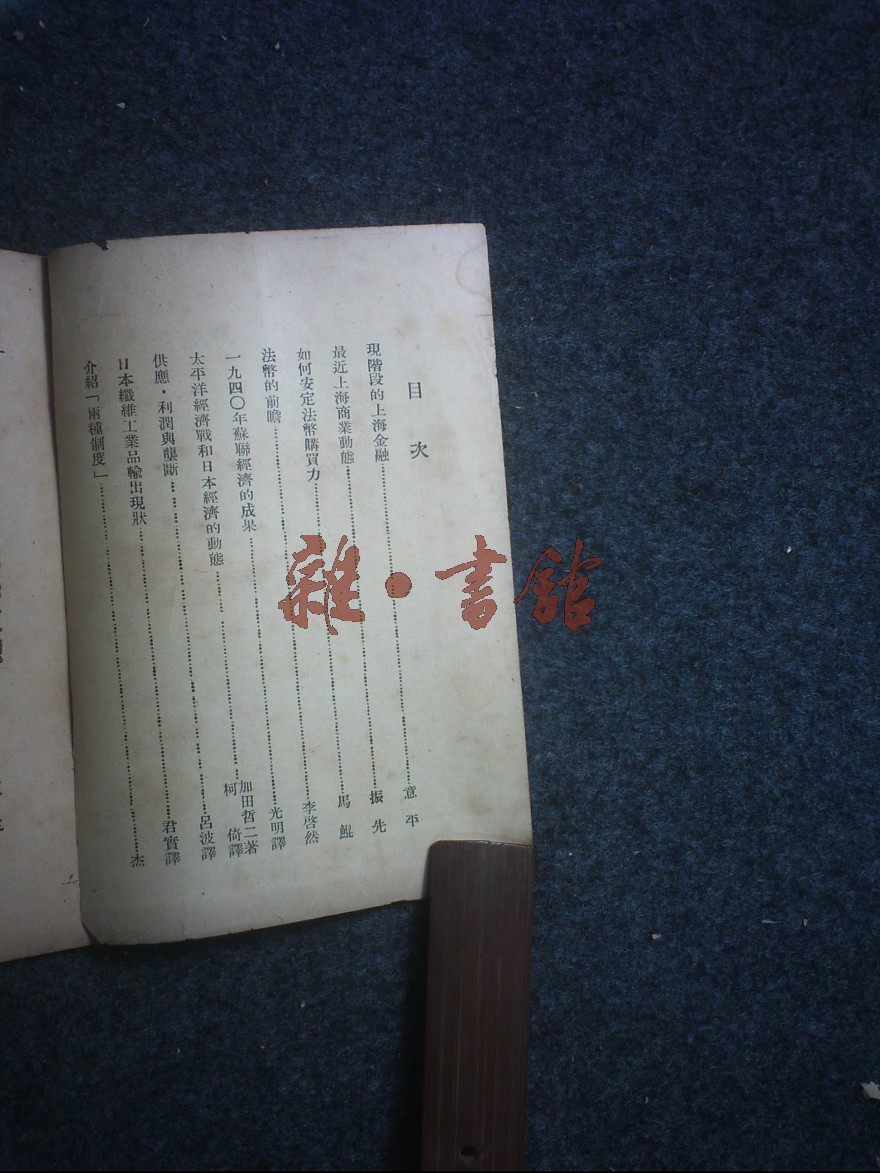 目次
現階段的上海金融……意平
最近上海商業動態……振先
如何安定法幣購買力……馬鯤
法幣的前瞻……李啓然
一九四〇年蘇聯經濟的成果……光明譯
太平洋經濟戰和日本經濟的動態……加田哲二著 柯倚譯
供應·利潤與壟斷……呂波譯
日本纖維工業品輸出現狀……君實譯
介紹「兩種制度」……杰
雜·書館